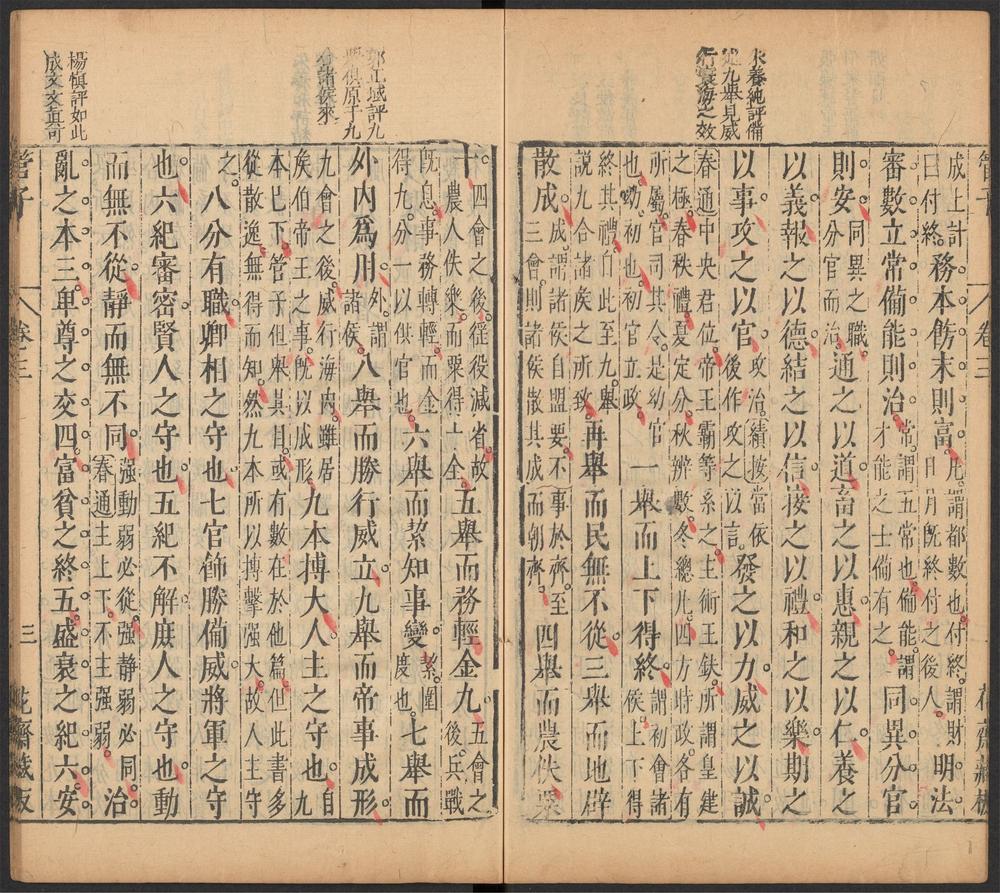 朱養純評備
述九舉見威
行寰海之效
管子 卷三 花齋藏板
成上計
曰付終
務本飭末則富
凡謂都數也付終謂財
日月旣終付之後人
明法
審數立常備能則治
常謂五常也備能謂
才能之士備有之
同異分官
則安
同異之職
分官而治
通之以道畜之以惠親之以仁養之
以義報之以德結之以信接之以禮和之以樂期之
以事攻之以官
攻治績按當依
後作攻之以言
發之以力威之以誠
春通中央君位帝王霸等系之主術王鈇所謂皇建
之極春秩禮夏定分秋辨數冬總凡四方時政各有
所屬官司其令是幼官
也幼初也初官立政
一舉而上下得終
謂初會諸
侯上下得
終其禮自此至九舉
說九合諸矦之所致
再舉而民無不從三舉而地辟
散成
成謂諸侯自盟要不事於齊至
三會則諸侯散其成而朝齊
四舉而農佚粟
郭正域評九
舉俱原于九
合諸侯來
楊慎評如此
成文文真可
十
四會之後徭役減省故
農人佚樂而粟得十全
五舉而務輕金九
五會之
後兵戰
旣息事務轉輕而金
得九分一以供官也
六舉而絜知事變
絜圍
度也
七舉而
外內爲用
外謂
諸侯
八舉而勝行威立九舉而帝事成形
九會之後威行海內雖居
矦伯帝王之事旣以成形
九本搏大人主之守也
自九
本已下管子但舉其目或有數在於他篇但此書多
從散逸無得而知然九本所以搏擊强大故人主守
之
八分有職卿相之守也七官飾勝備威將軍之守
也六紀審密賢人之守也五紀不解庶人之守也動
而無不從静而無不同
强動弱必從强静弱必同
春通主上下不主强弱
治
亂之本三卑尊之交四富貧之終五盛衰之紀六安
管子 卷三 三 花齋藏板